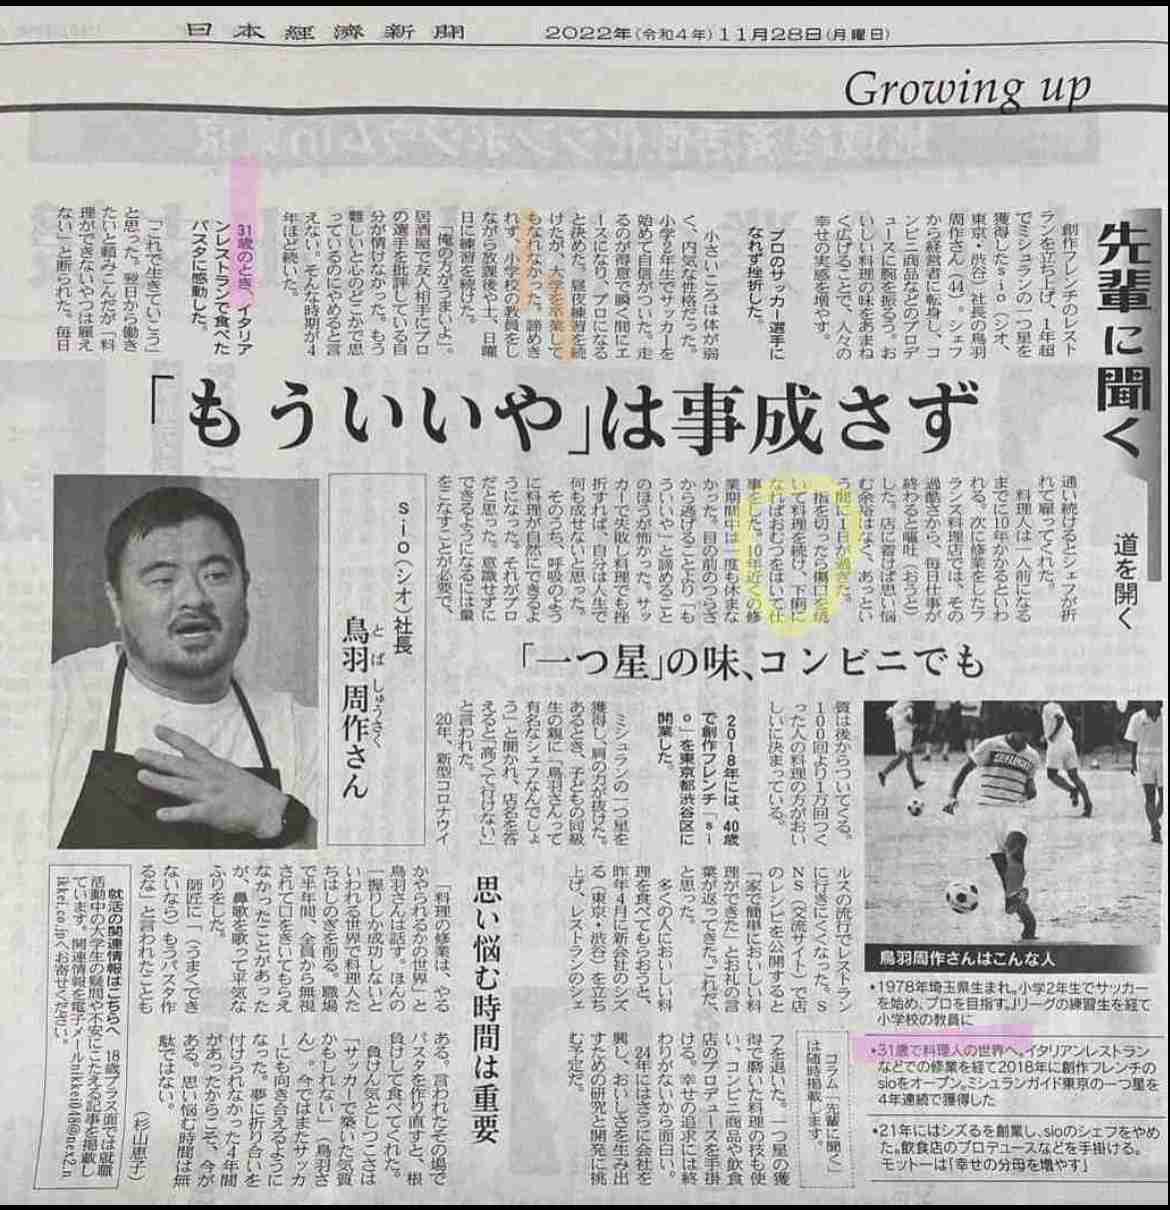 日本経済新聞
2022年(令和4年)11月28日(月曜日)
Growing up
先輩に聞く
道を開く
「もういいや」は事成さず
「一つ星」の味、コンビニでも
創作フレンチのレスト
ランを立ち上げ、1年超
でミシュランの一つ星を
獲得したsio(シオ、
東京・渋谷)社長の鳥羽
周作さん(44)。シェフ
から経営者に転身し、コ
ンビニ商品などのプロデ
ュースに腕を振るう。お
いしい料理の味をあまね
く広げることで、人々の
幸せの実感を増やす。
プロのサッカー選手に
なれず挫折した。
小さいころは体が弱
く、内気な性格だった。
小学2年生でサッカーを
始めて自信がついた。走
るのが得意で瞬く間にエ
ースになり、プロになる
と決めた。昼夜練習を続
けたが、大学を卒業して
もなれなかった。諦めき
れず、小学校の教員をし
ながら放課後や土、日曜
日に練習を続けた。
「俺の方がうまいよ」。
居酒屋で友人相手にプロ
の選手を批評している自
分が情けなかった。もう
難しいと心のどこかで思
っているのにやめると言
えない。そんな時期が4
年ほど続いた。
31歳のとき、イタリア
ンレストランで食べた
パスタに感動した。
「これで生きていこう」
と思った。翌日から働き
たいと頼みこんだが「料
理ができないやつは雇え
ない」と断られた。毎日
通い続けるとシェフが折
れて雇ってくれた。
料理人は一人前になる
までに10年かかるといわ
れる。次に修業をしたフ
ランス料理店では、その
過酷さから、毎日仕事が
終わると嘔吐(おうと)
した。店に着けば思い悩
む余裕はなく、あっとい
う間に1日が過ぎた。
指を切ったら傷口を焼
いて料理を続け、下痢に
なればおむつをはいて仕
事をした。10年近くの修
業期間中は一度も休まな
かった。目の前のつらさ
から逃げることより「も
ういいや」と諦めること
のほうが怖かった。サッ
カーで失敗し料理でも挫
折すれば、自分は人生で
何も成せないと思った。
そのうち、呼吸のよう
に料理が自然にできるよ
うになった。それがプロ
だと思った。意識せずに
できるようになるには量
をこなすことが必要で、
質は後からついてくる。
100回より1万回つく
った人の料理の方がおい
しいに決まっている。
2018年には、40歳
で創作フレンチ「si
o」を東京都渋谷区に
開業した。
ミシュランの一つ星を
獲得し、肩の力が抜けた。
あるとき、子どもの同級
生の親に「鳥羽さんって
有名なシェフなんでしょ
う」と聞かれ、店名を答
えると「高くて行けない」
と言われた。
20年、新型コロナウイ
ルスの流行でレストラン
に行きにくくなった。S
NS(交流サイト)で店
のレシピを公開すると
「家で簡単においしい料
理ができた」とお礼の言
葉が返ってきた。これだ、
と思った。
多くの人においしい料
理を食べてもらおうと、
昨年4月に新会社のシズ
る(東京・渋谷)を立ち
上げ、レストランのシェ
フを退いた。一つ星の獲
得で磨いた料理の技も使
い、コンビニ商品や飲食
店のプロデュースを手掛
ける。幸せの追求には終
わりがないから面白い。
24年にはさらに会社を
興し、おいしさを生み出
すための研究と開発に挑
む予定だ。
コラム「先輩に聞く」
は随時掲載します。
sio(シオ)社長
鳥羽 周作さん
とば しゅうさく
思い悩む時間は重要
「料理の修業は、やる
かやられるかの世界」と
鳥羽さんは話す。ほんの
一握りしか成功しないと
いわれる世界で料理人た
ちはしのぎを削る。職場
で半年間、全員から無視
されて口をきいてもらえ
なかったことがあった
が、鼻歌を歌って平気な
ふりをした。
師匠に「(うまくでき
ないなら)もうパスタ作
るな」と言われたことも
ある。言われたその場で
パスタを作り直すと、根
負けして食べてくれた。
負けん気としつこさは
「サッカーで築いた気質
かもしれない」(鳥羽さ
ん)。今ではまたサッカ
ーにも向き合えるように
なった。夢に折り合いを
付けられなかった4年間
があったからこそ、今が
ある。思い悩む時間は無
駄ではない。
(杉山恵子)
就活の関連情報はこちらへ 18歳プラス面では就職
活動中の大学生の疑問や不安にこたえる記事を掲載し
ています。関連情報を電子メールnikkei048@nex2.n
ikkei.co.jpへお寄せください。
鳥羽周作さんはこんな人
•1978年埼玉県生まれ。小学2年生でサッカー
を始め、プロを目指す。Jリーグの練習生を経て
小学校の教員に
•31歳で料理人の世界へ。イタリアンレストラン
などでの修業を経て2018年に創作フレンチの
sioをオープン。ミシュランガイド東京の一つ星を
4年連続で獲得した
•21年にはシズるを創業し、sioのシェフをやめ
た。飲食店のプロデュースなどを手掛ける。
モットーは「幸せの分母を増やす」